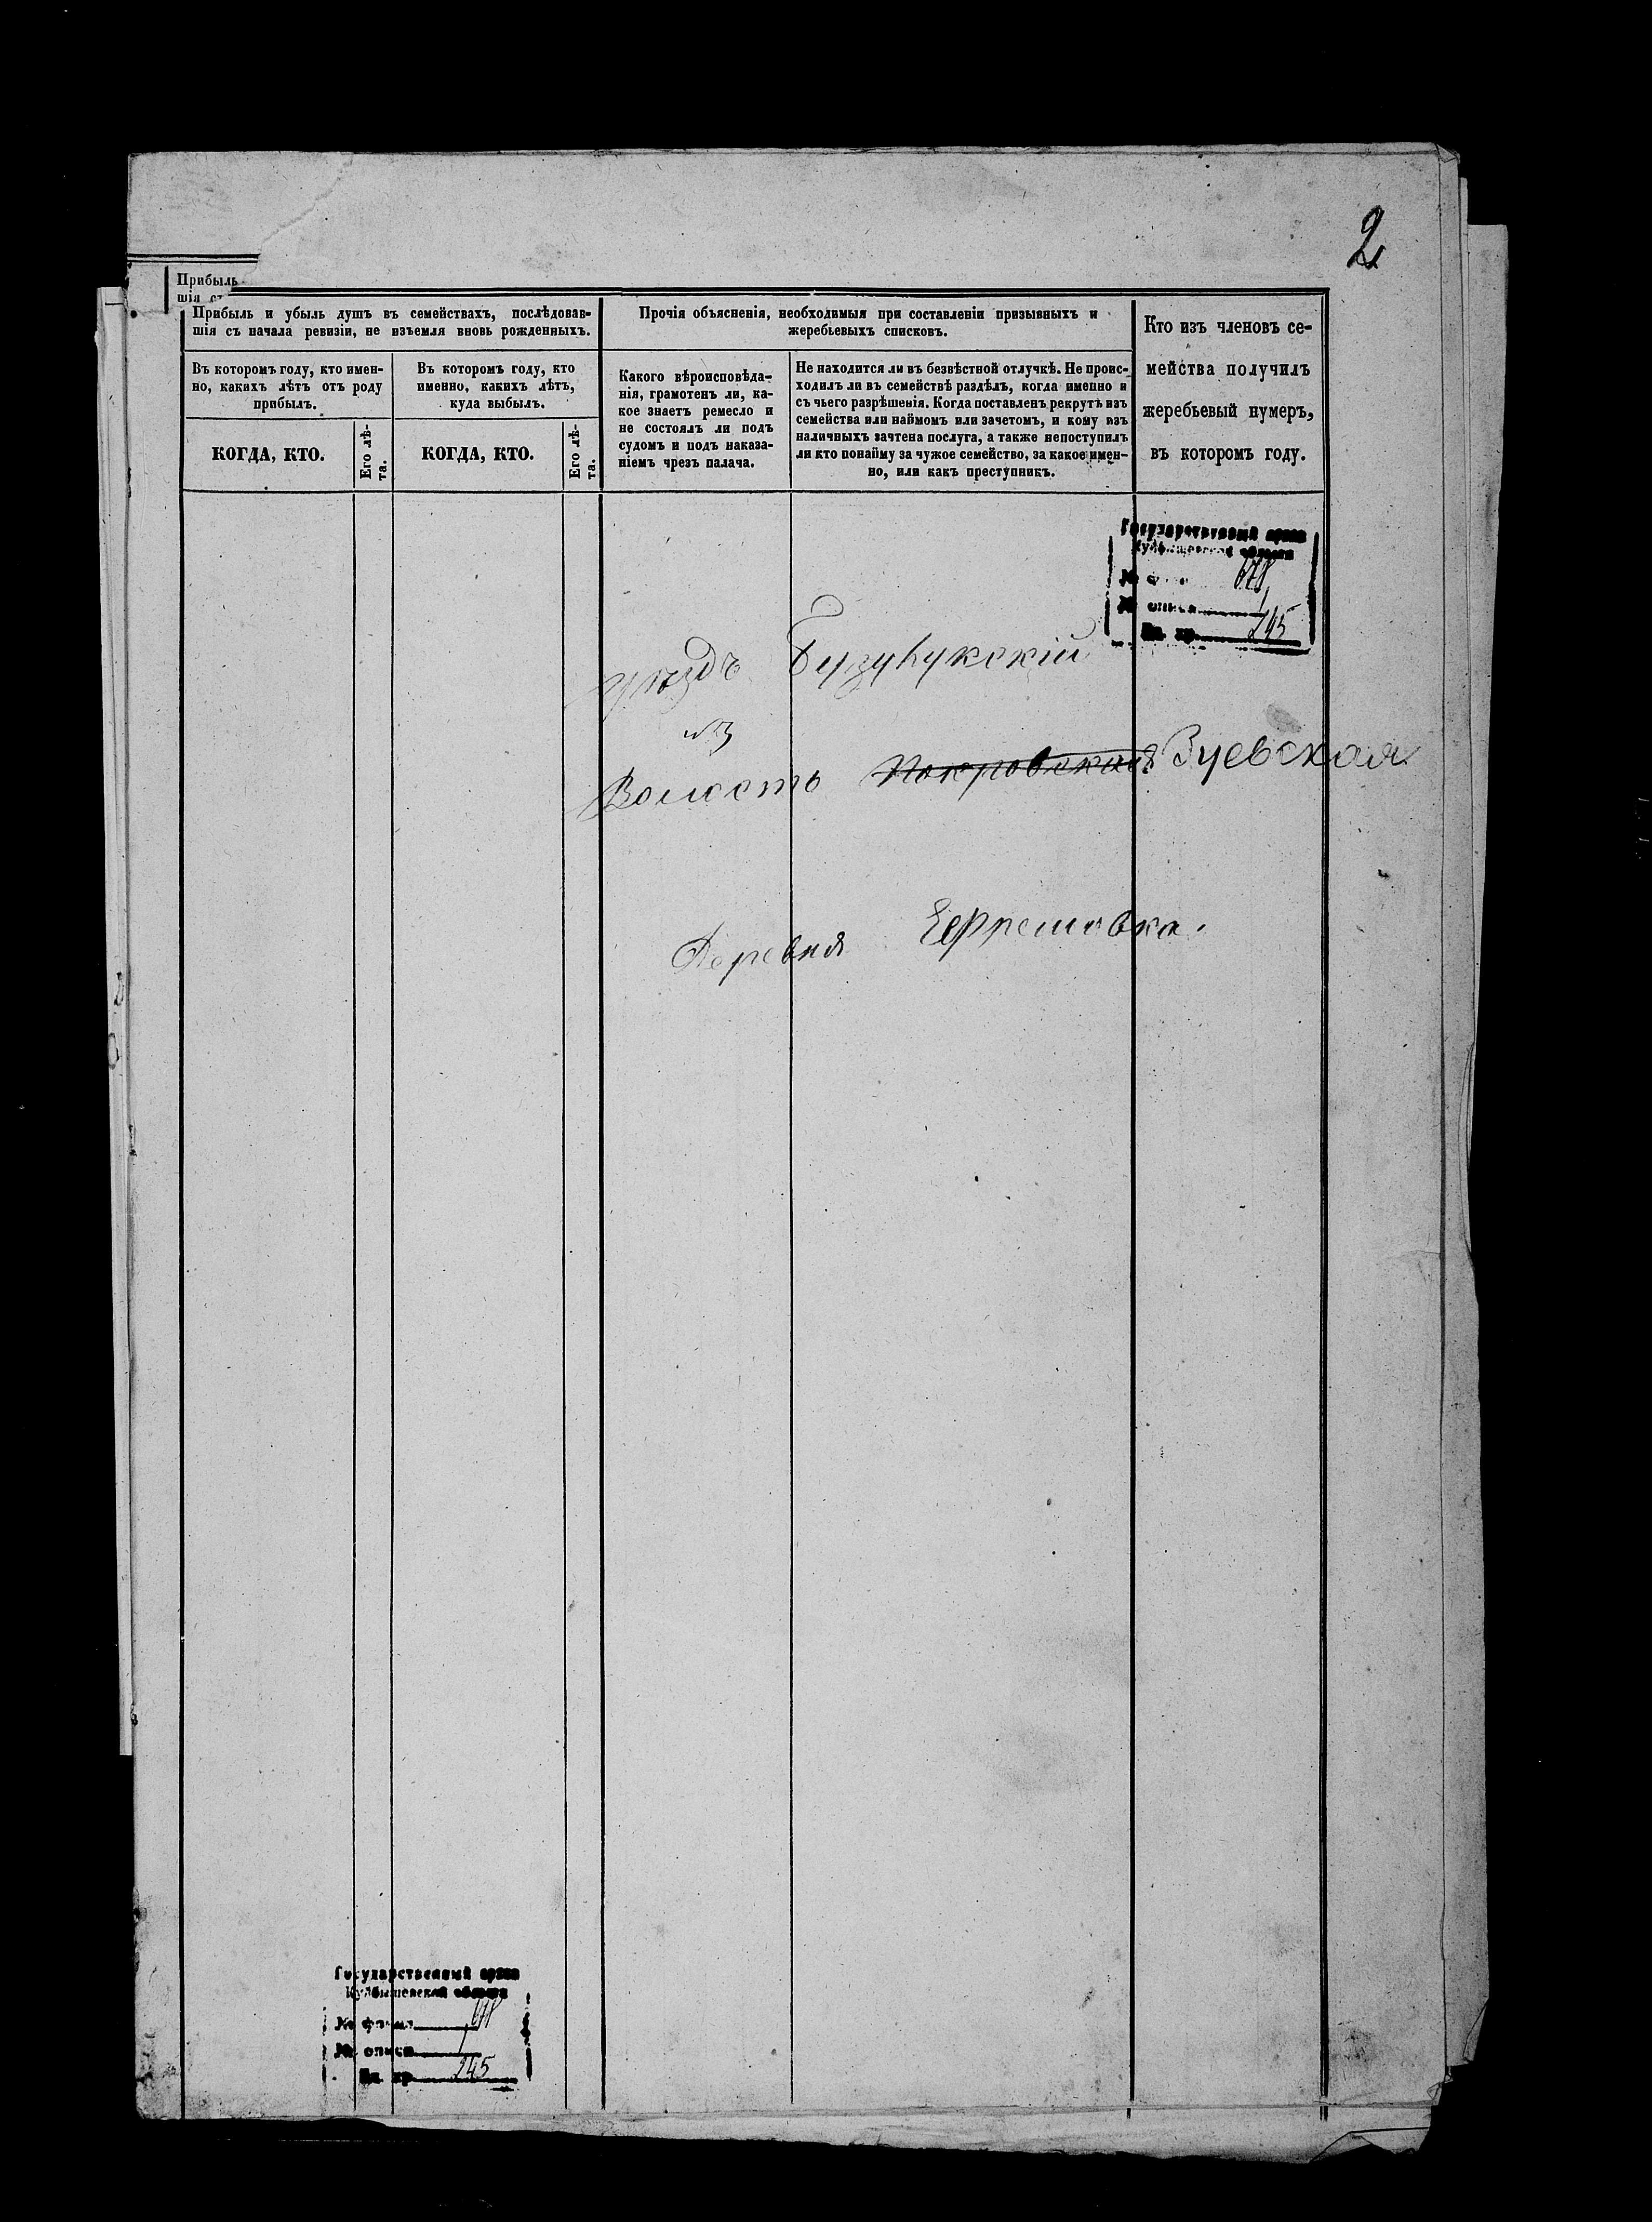 2
Прибыль
шія съ
Прибыль и убыль душъ въ семействахъ, послѣдовав-
шія съ начала ревизіи, не изъемля вновь рожденныхъ.
Въ которомъ году, кто имен-
но, какихъ лѣтъ отъ роду
прибылъ.
Въ которомъ году, кто
именно, какихъ лѣтъ,
куда выбылъ.
КОГДА, КТО.
Его лѣ-
та.
КОГДА, КТО.
Его лѣ-
та.
Прочія объясненія, необходимыя при составленіи призывныхъ и
жеребьевыхъ списковъ.
Какого вѣроисповѣда-
нія, грамотенъ ли, ка-
кое знаетъ ремесло и
не состоялъ ли подъ
судомъ и подъ наказа-
ніемъ чрезъ палача.
Не находится ли въ безвѣстной отлучкѣ. Не проис-
ходилъ ли въ семействѣ раздѣлъ, когда именно и
съ чьего разрѣшенія. Когда поставленъ рекрутъ изъ
семейства или наймомъ или зачетомъ, и кому изъ
наличныхъ зачтена послуга, а также непоступилъ
ли кто понайму за чужое семейство, за какое имен-
но, или какъ преступникъ.
Кто изъ членовъ се-
мейства получилъ
жеребьевый нумеръ,
въ которомъ году.
Государственный архив
Куйбышевской области
№ фонда 678
№ описи 1
Ед. хр. 245
Уѣздъ Бузулукскій
Волость Покровская Зуевская
Деревня Ефремовка.
Государственный архив
Куйбышевской области
№ фонда 678
№ описи 1
Ед. хр. 245